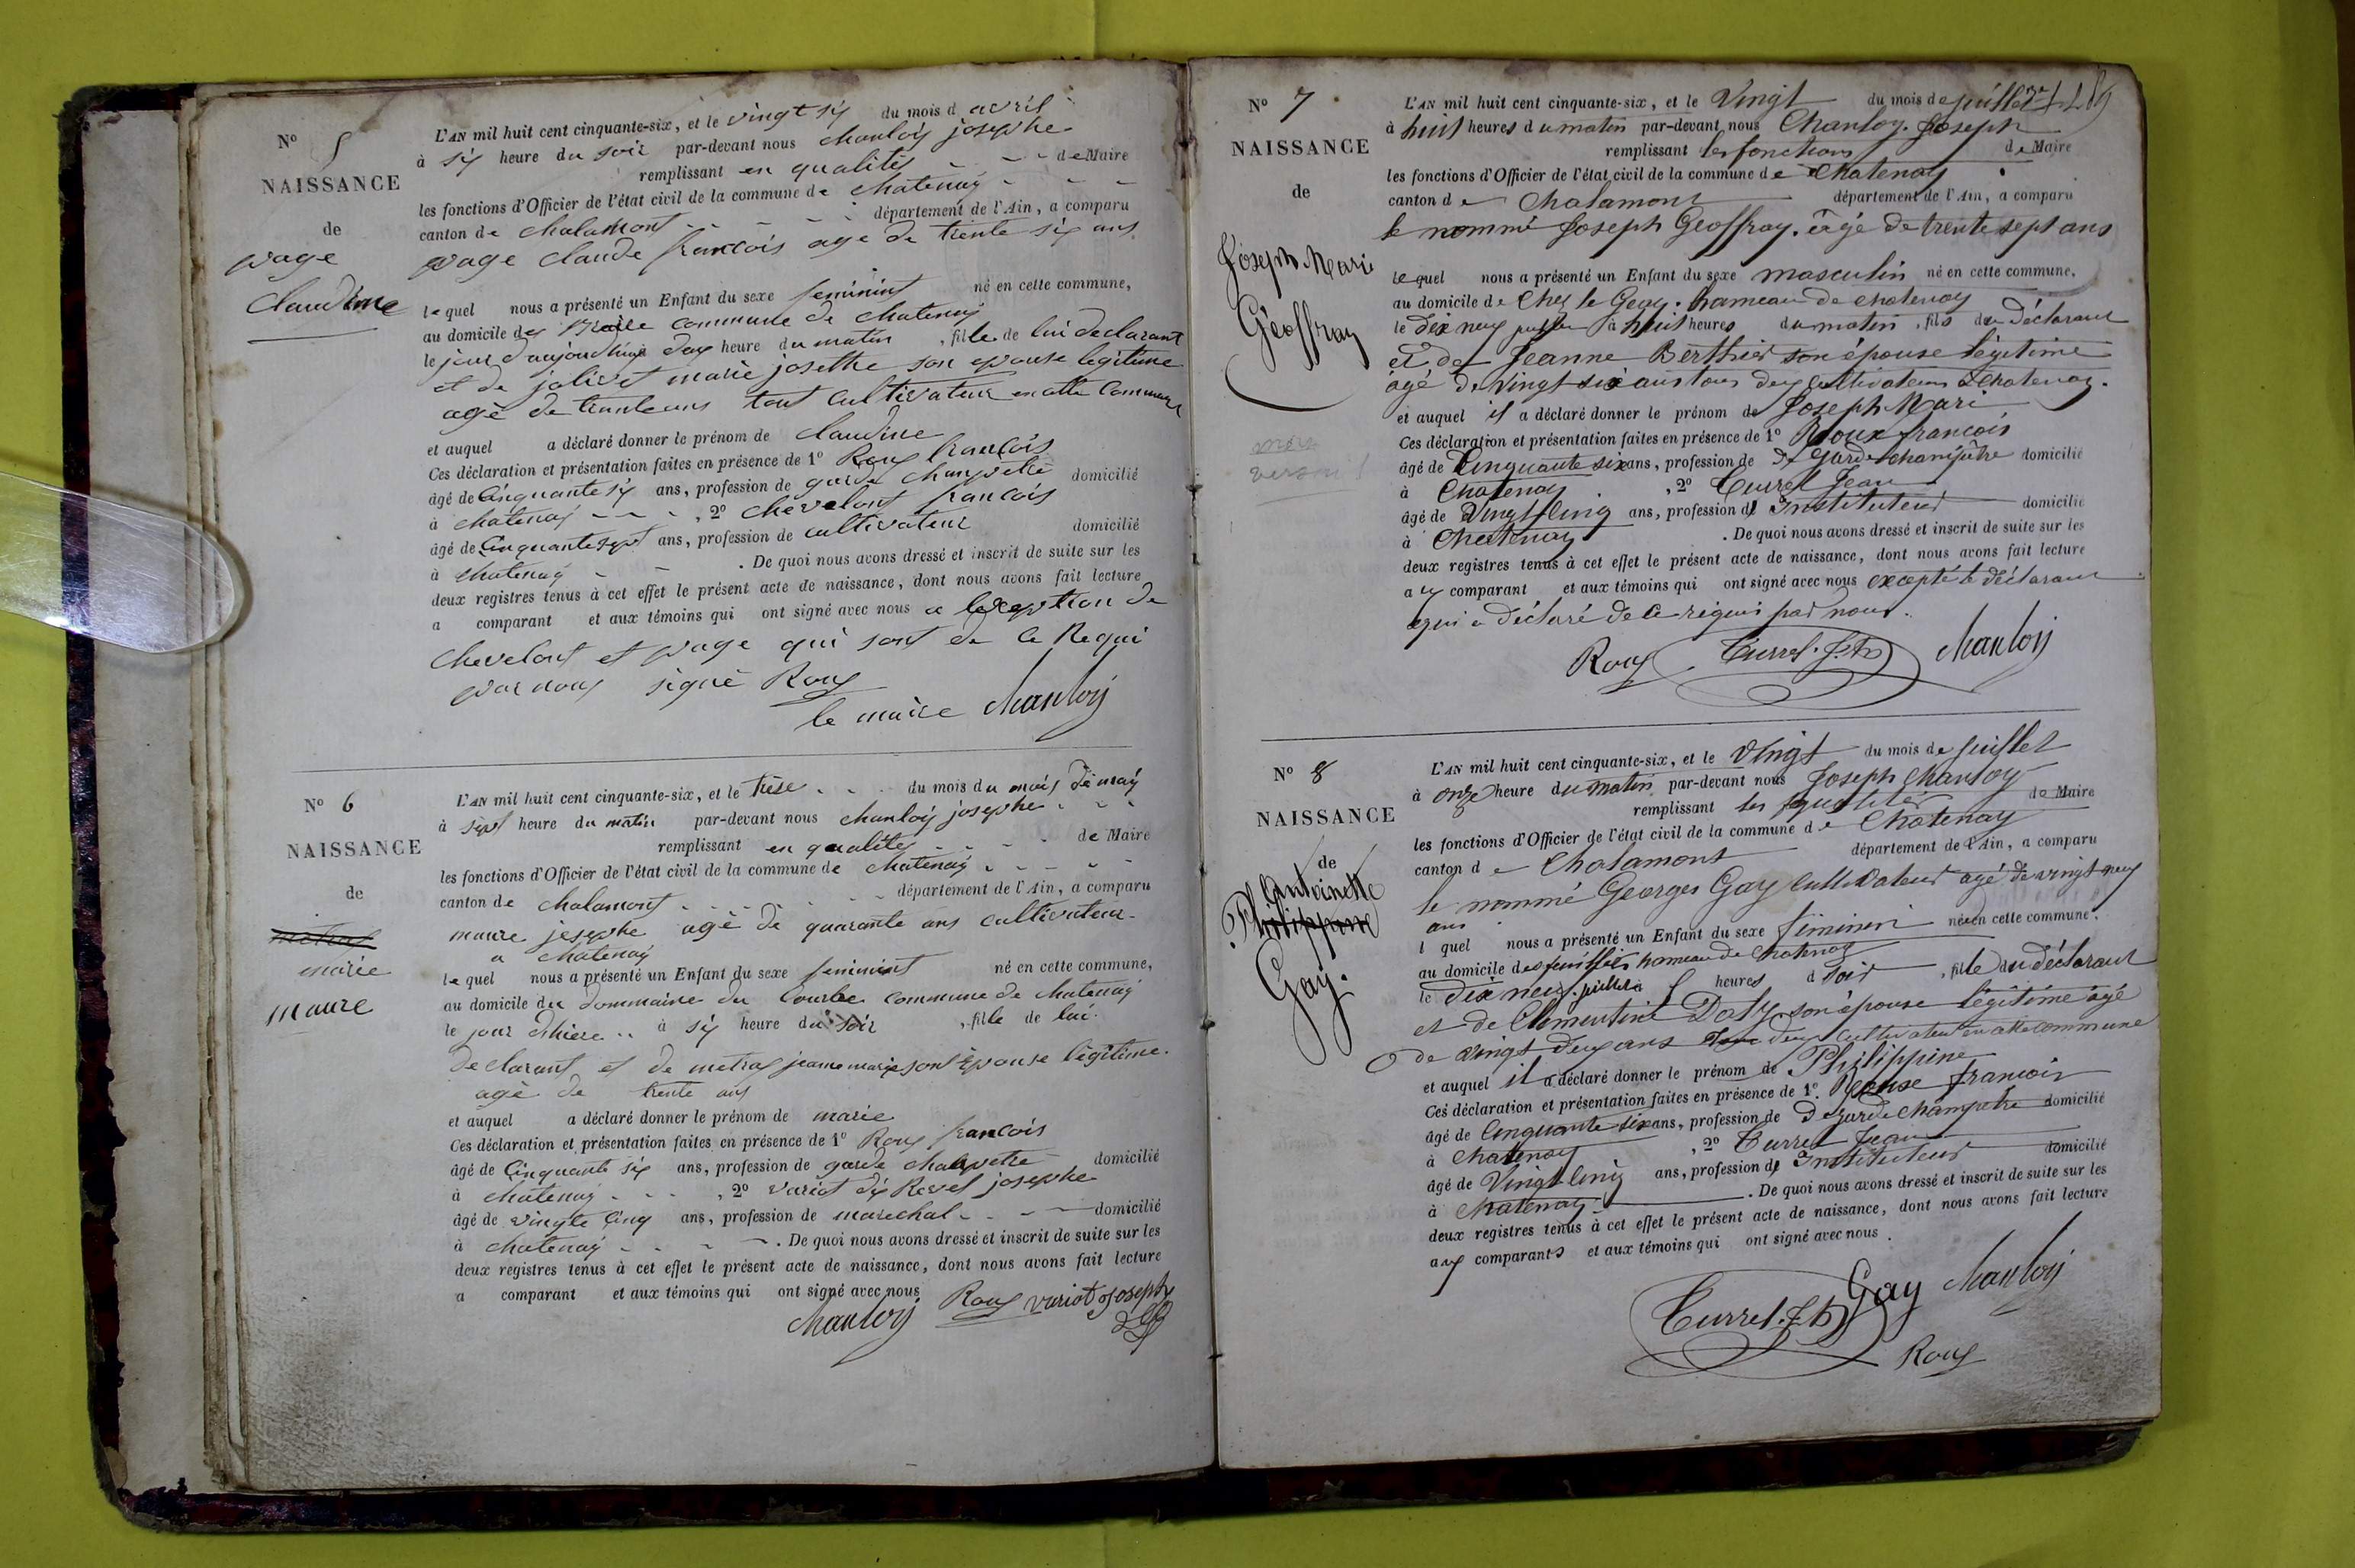 N° 5
NAISSANCE
de
page
Claudine
L'AN mil huit cent cinquante-six, et le vingt six du mois d avril
à six heure du soir par-devant nous chanloy josephe
remplissant en qualités de Maire
les fonctions d'Officier de l'état civil de la commune de chatenay
canton de chalamont département de l'Ain, a comparu
page claude francois age de trente six ans
lequel nous a présenté un Enfant du sexe feminint né en cette commune,
au domicile des commune de chatenay
le jour daujourdhuy dux heure du matin , fille de lui declarant
et de jolivet marie josette son epouse legitime
agè de trenteans tout cultivateur en cette commune
et auquel a déclaré donner le prénom de claudine
Ces déclaration et présentation faites en présence de 1° Roux francois
âgé de Cinquante six ans, profession de garde champetre domicilié
à chatenay , 2° chevelont francois
âgé de Cinquante sept ans, profession de cultivateur domicilié
à chatenay . De quoi nous avons dressé et inscrit de suite sur les
deux registres tenus à cet effet le présent acte de naissance, dont nous avons fait lecture
a comparant et aux témoins qui ont signé avec nous a lexeption de
chevelont et page qui sont de ce Requi
par nous signé Roux
le maire chanloy
N° 6
NAISSANCE
de
metras
marie
maure
L'AN mil huit cent cinquante-six, et le trèse du mois du mois de may
à sept heure du matin par-devant nous chanloy josephe
remplissant en qualités de Maire
les fonctions d'Officier de l'état civil de la commune de chatenay
canton de chalamont département de l'Ain, a comparu
maure josephe agé de quarante ans cultivateur
a chatenay
lequel nous a présenté un Enfant du sexe feminint né en cette commune,
au domicile du dommaine du Courbe commune de chatenay
le jour dhiere à six heure du soir , fille de lui
declarant et de metras jeanne marie sont épouse légitime
agé de trente ans
et auquel a déclaré donner le prénom de marie
Ces déclaration et présentation faites en présence de 1° Roux francois
âgé de Cinquante six ans, profession de garde champetre domicilié
à chatenay , 2° variot dix Revel josephe
âgé de vingte Cinq ans, profession de marechal domicilié
à chatenay . De quoi nous avons dressé et inscrit de suite sur les
deux registres tenus à cet effet le présent acte de naissance, dont nous avons fait lecture
a comparant et aux témoins qui ont signé avec nous
chanloy Roux variot joseph
N° 7
NAISSANCE
de
Joseph Marie
Géoffray
L'AN mil huit cent cinquante-six, et le Vingt du mois de juillet
à huit heures du matin par-devant nous Chanloy Joseph
remplissant les fonctions de Maire
les fonctions d'Officier de l'état civil de la commune de Chatenay
canton de Chalamont département de l'Ain, a comparu
le nommé Joseph Géoffray. âgé de trente sept ans
lequel nous a présenté un Enfant du sexe masculin né en cette commune,
au domicile de Chez le Geay. hameau de chatenay
le dix neuf juillet à huit heures du matin , fils du Déclarant
et de Jeanne Berthier son épouse légitime
agé de vingt six ans tous deux cultivateurs à Chatenay.
et auquel il a déclaré donner le prénom de Joseph Mari
Ces déclaration et présentation faites en présence de 1° Roux françois
âgé de Cinquante six ans, profession de De garde champêtre domicilié
à Chatenay , 2° Currel Jean
âgé de Vingt Cinq ans, profession de Instituteur domicilié
à Chatenay . De quoi nous avons dressé et inscrit de suite sur les
deux registres tenus à cet effet le présent acte de naissance, dont nous avons fait lecture
aux comparant et aux témoins qui ont signé avec nous excepté le déclarant
qui a déclaré de ce réquis par nous.
Roux Currel. J. chanloy
N° 8
NAISSANCE
de
Antoinette
Philippine
Gay.
L'AN mil huit cent cinquante-six, et le Vingt du mois de juillet
à onze heure du matin par-devant nous Joseph Chanloy
remplissant les qualités de Maire
les fonctions d'Officier de l'état civil de la commune de Chatenay
canton de Chalamont département de l'Ain, a comparu
le nommé Georges Gay Cultivateur agé de vingt neuf
ans
l quel nous a présenté un Enfant du sexe féminin née en cette commune,
au domicile des hameau de Chatenay
le Dix neuf. juillet à 5 heures d soir , fille du déclarant
et de Clementine Daty son épouse légitime agé
de vingt deux ans deux cultivateur en cette commune
et auquel il a déclaré donner le prénom de Philippine
Ces déclaration et présentation faites en présence de 1° francois
âgé de Cinquante six ans, profession de De garde champetre domicilié
à Chatenay , 2° Currel Jean
âgé de Vingt Cinq ans, profession de Instituteur domicilié
à Chatenay . De quoi nous avons dressé et inscrit de suite sur les
deux registres tenus à cet effet le présent acte de naissance, dont nous avons fait lecture
aux comparants et aux témoins qui ont signé avec nous.
Currel. J. Gay chanloy
Roux